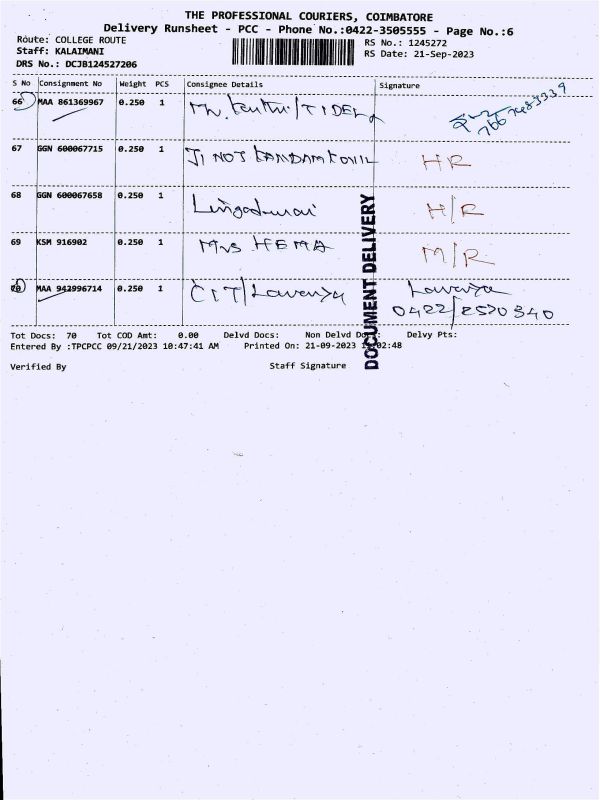 THE PROFESSIONAL COURIERS, COIMBATORE
Delivery Runsheet - PCC - Phone No.:0422-3505555 - Page No.:6
Route: COLLEGE ROUTE
RS No.: 1245272
Staff: KALAIMANI
RS Date: 21-Sep-2023
DRS No.: DCJB124527206
S No Consignment No Weight PCS Consignee Details Signature
66 MAA 861369967 0.250 1 TIDEL
67 GGN 600067715 0.250 1 HR
68 GGN 600067658 0.250 1 Lingadurai H/R
69 KSM 916902 0.250 1 Mrs HEMA M/R
70 MAA 942996714 0.250 1 CIT/Lavanya Lavanya
0422/2570340
DOCUMENT DELIVERY
Tot Docs: 70 Tot COD Amt: 0.00 Delvd Docs: Non Delvd Docs: Delvy Pts:
Entered By :TPCPCC 09/21/2023 10:47:41 AM Printed On: 21-09-2023
Verified By Staff Signature